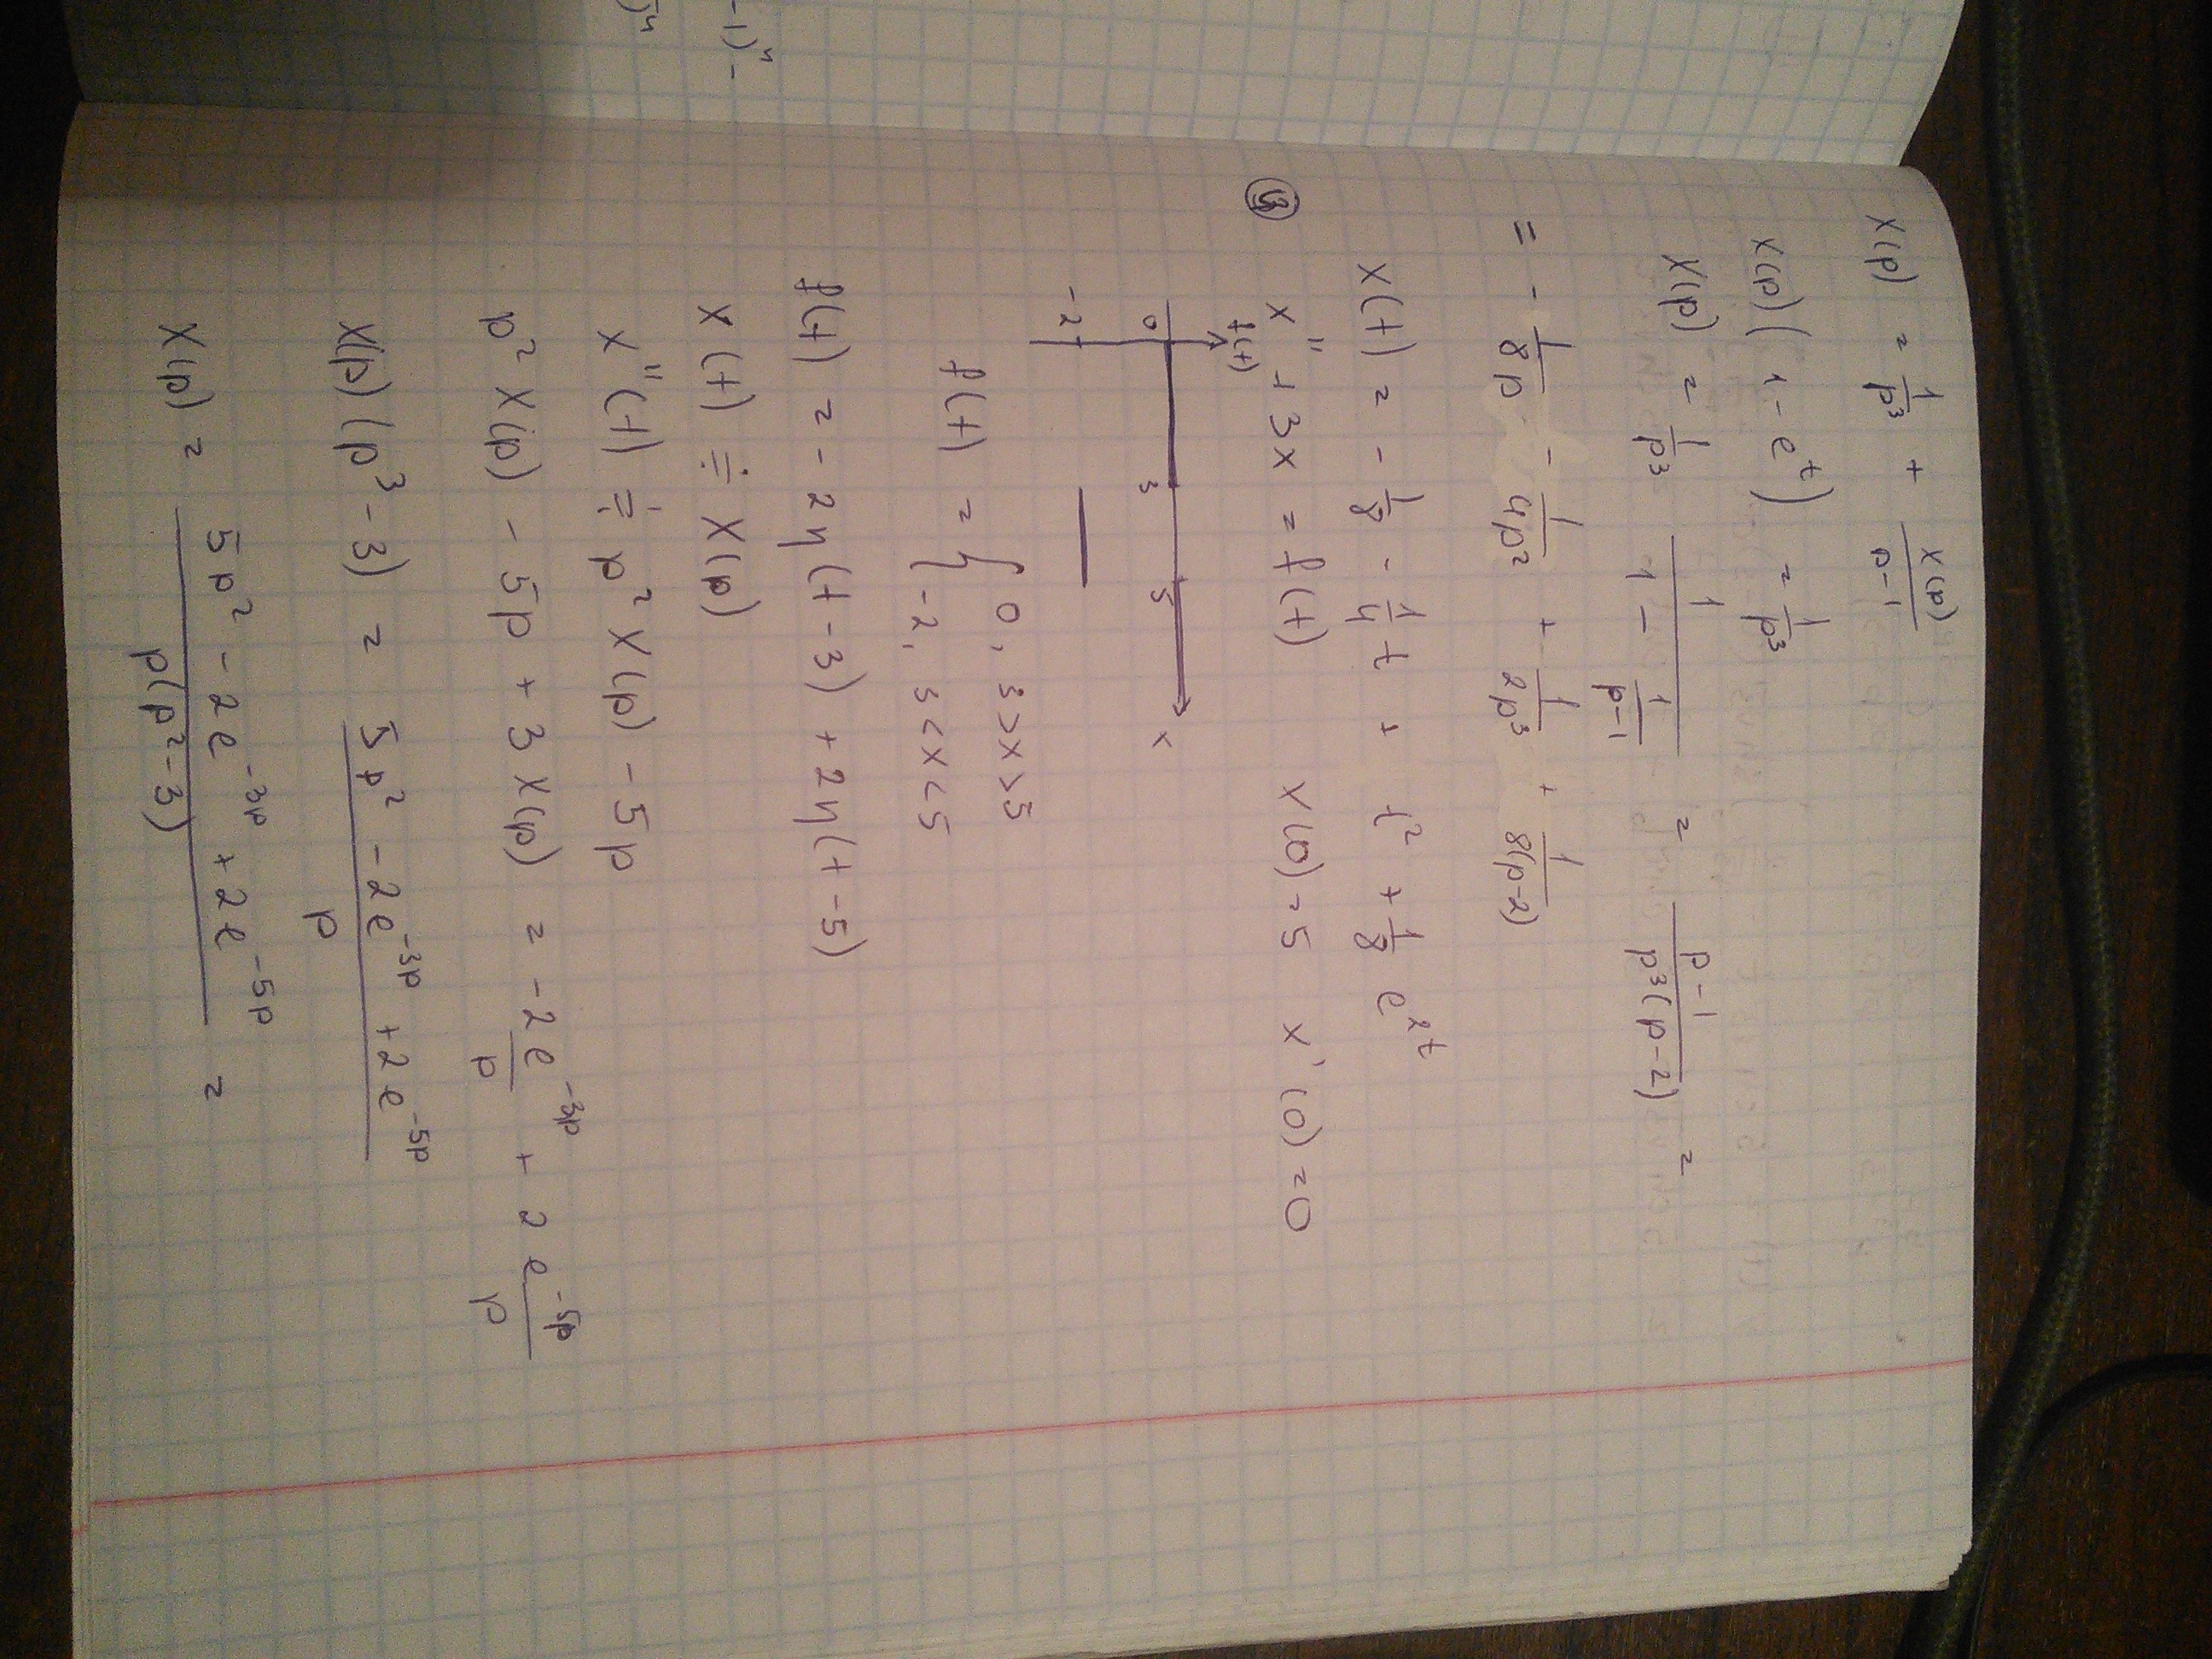 x(p) = 1/p³ + x(p)/(p-1)
x(p)(1-e^t) = 1/p³
x(p) = 1/p³ 1/(1 - 1/(p-1)) = (p-1)/(p³(p-2)) =
= - 1/8p - 1/4p² + 1/2p³ + 1/8(p-2)
x(t) = - 1/8 - 1/4 t + t² + 1/8 e^2t
x'' + 3x = f(t) x(0) = 5 x'(0) = 0
f(t)
0 3 5 x
-2
f(t) = { 0, 3>x>5
-2, 3<x<5
f(t) = -2η(t-3) + 2η(t-5)
x(t) ≑ X(p)
x''(t) ≑ p² X(p) - 5p
p² X(p) - 5p + 3X(p) = -2 e^-3p/p + 2 e^-5p/p
X(p)(p³-3) = (5p² - 2e^-3p + 2e^-5p)/p
X(p) = (5p² - 2e^-3p + 2e^-5p)/(p(p²-3)) =
-1)ⁿ-
)ⁿ